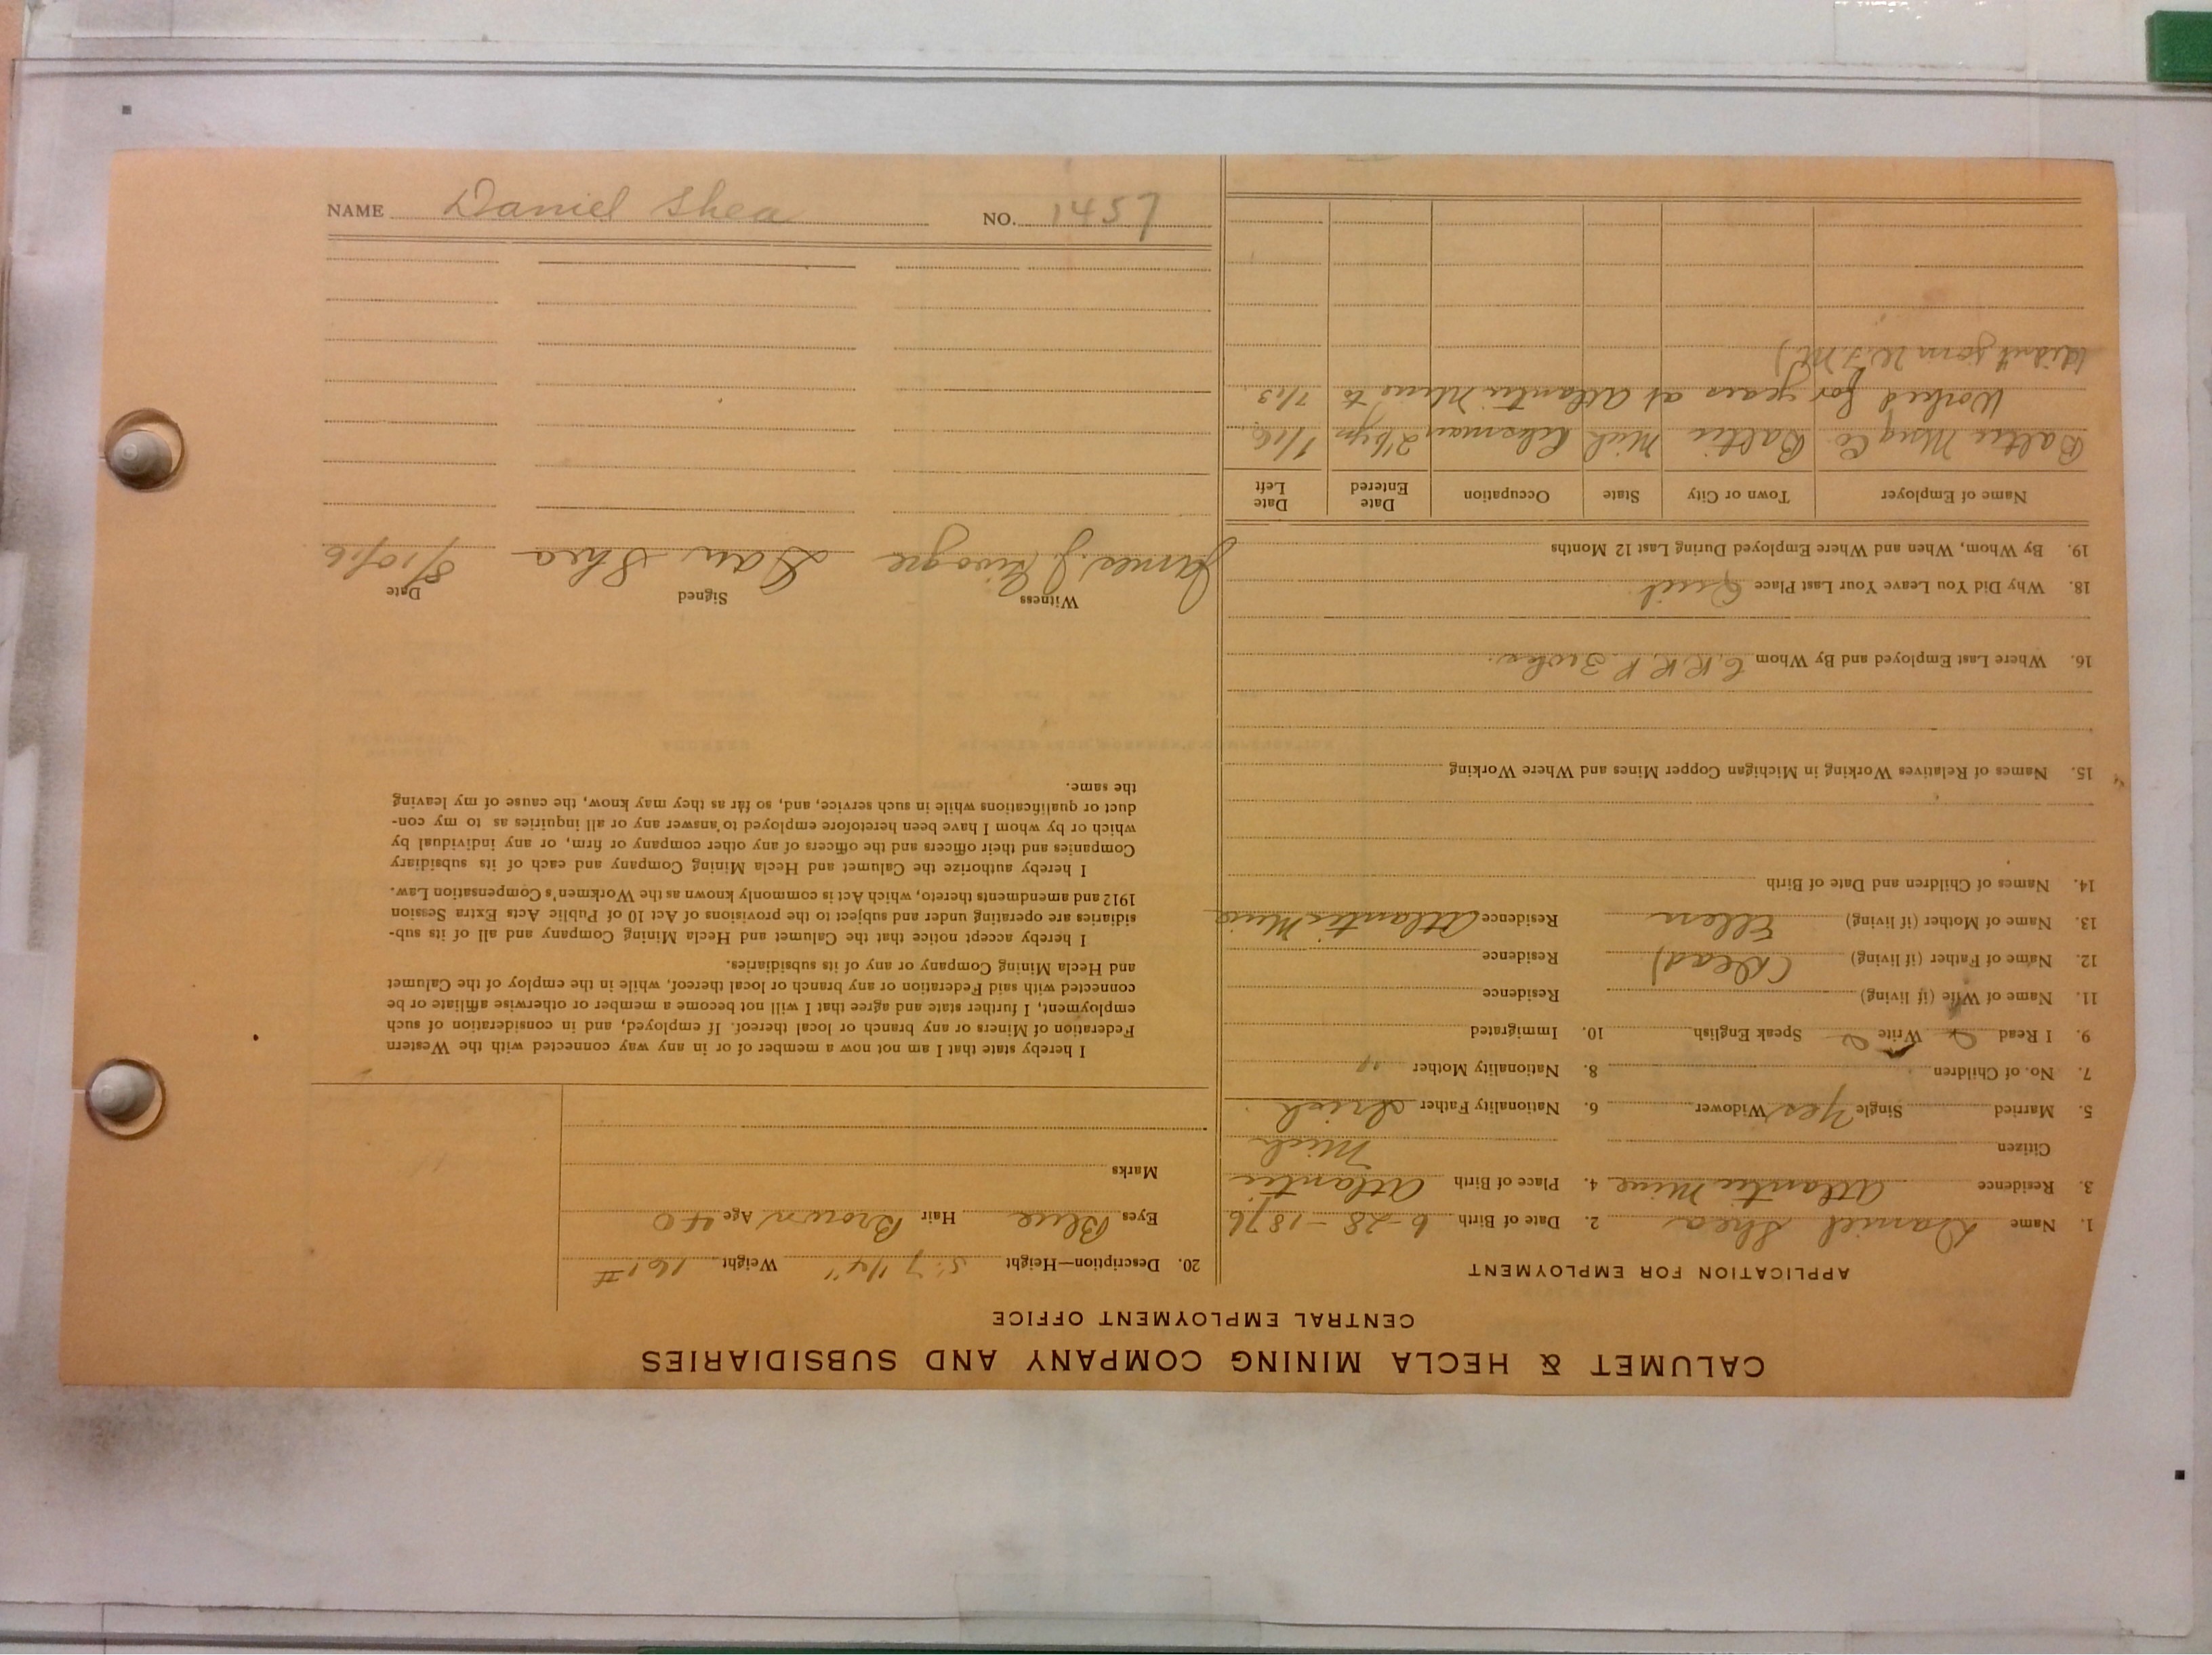 NAME Daniel Shea NO. 1457
CALUMET & HECLA MINING COMPANY AND SUBSIDIARIES
CENTRAL EMPLOYMENT OFFICE
APPLICATION FOR EMPLOYMENT
1. Name Daniel Shea 2. Date of Birth 6-28-1876
3. Residence Atlantic Mine 4. Place of Birth Atlantic
Citizen Mich
5. Married Single Yes Widower 6. Nationality Father Irish
7. No. of Children 8. Nationality Mother "
9. I Read Write Speak English 10. Immigrated
11. Name of Wife (if living) Residence
12. Name of Father (if living) (Dead) Residence
13. Name of Mother (if living) Ellen Residence Atlantic Mine
14. Names of Children and Date of Birth
15. Names of Relatives Working in Michigan Copper Mines and Where Working
16. Where Last Employed and By Whom C.R.R.R.
18. Why Did You Leave Your Last Place Quit
19. By Whom, When and Where Employed During Last 12 Months
Name of Employer Town or City State Occupation Date Entered Date Left
Baltic Mng Co Baltic Mich 2½ yrs 1/16
Worked for years at Atlantic Mine to 7/13
(didn't join W.F.M.)
20. Description—Height 5'7 1/4" Weight 161#
Eyes Blue Hair Brown Age 40
Marks
I hereby state that I am not now a member of or in any way connected with the Western
Federation of Miners or any branch or local thereof. If employed, and in consideration of such
employment, I further state and agree that I will not become a member or otherwise affiliate or be
connected with said Federation or any branch or local thereof, while in the employ of the Calumet
and Hecla Mining Company or any of its subsidiaries.
I hereby accept notice that the Calumet and Hecla Mining Company and all of its sub-
sidiaries are operating under and subject to the provisions of Act 10 of Public Acts Extra Session
1912 and amendments thereto, which Act is commonly known as the Workmen's Compensation Law.
I hereby authorize the Calumet and Hecla Mining Company and each of its subsidiary
Companies and their officers and the officers of any other company or firm, or any individual by
which or by whom I have been heretofore employed to answer any or all inquiries as to my con-
duct or qualifications while in such service, and, so far as they may know, the cause of my leaving
the same.
Witness Signed Date
James J. Dan Shea 8/10/16